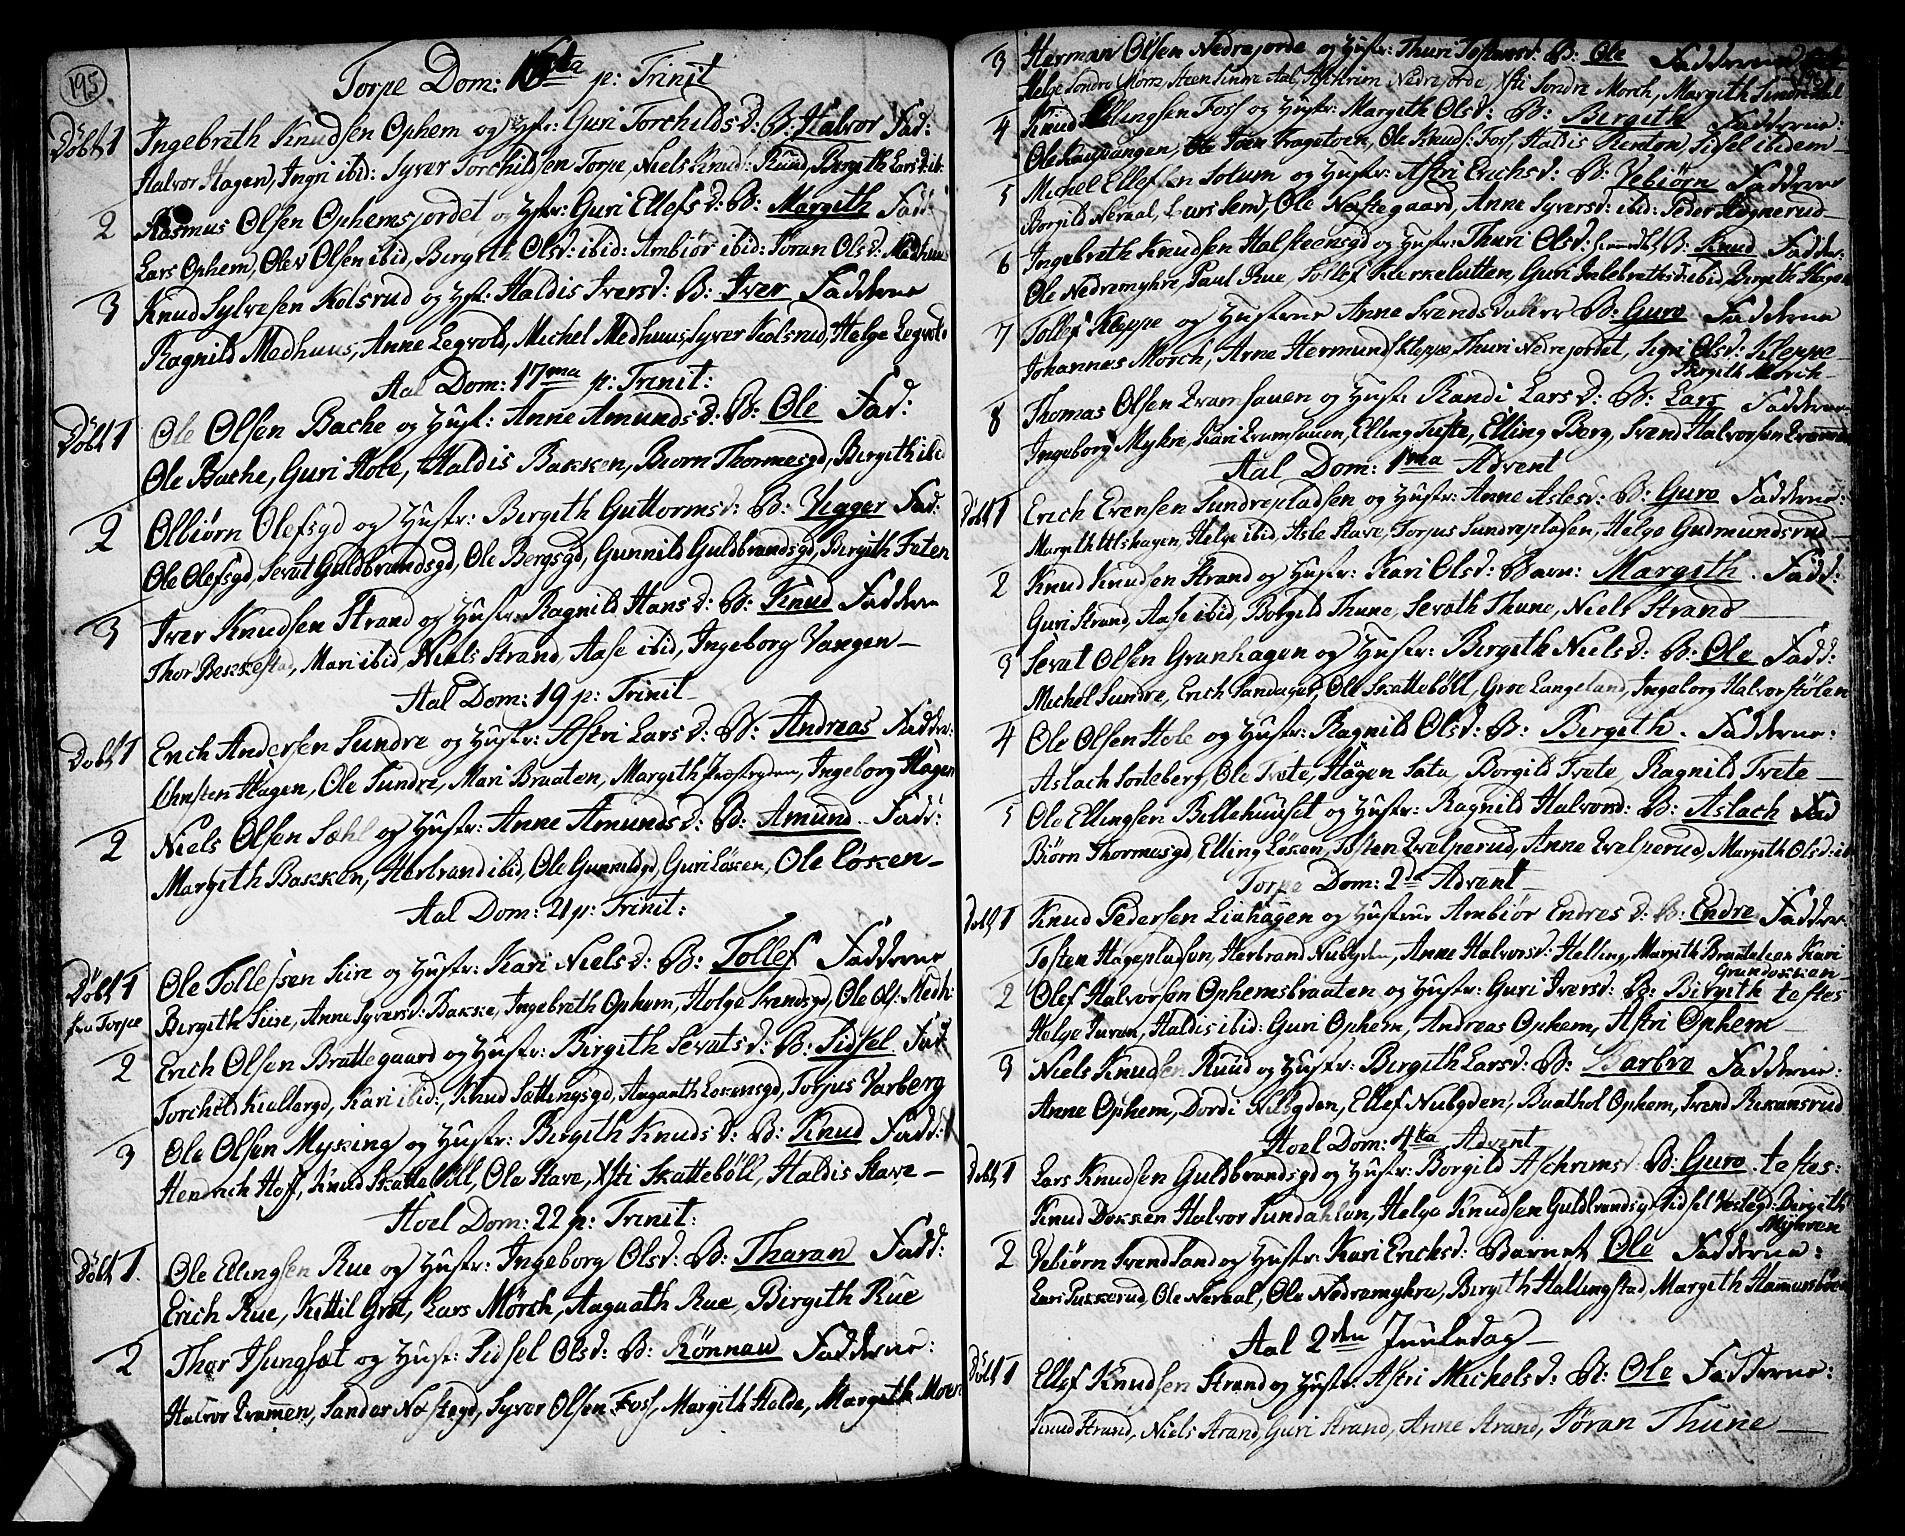 195
Torpe Dom: 16ta p: Trinit
Döbt 1 Ingebreth Knudsen Ophem og Hustr: Guri Torchilds d: B: Halvor Fad:
Halvor Hagen, Ingri ibid: Syver Torchildsen Torpe, Niels Knuds: Ruud, Birgith Lars d: ib:
2 Rasmus Olsen Ophemsjordet og Hustr: Guri Ellefs d: B: Margith Fad:
Lars Ophem, Olev Olsen ibid, Birgith Ols d: ibid: Ambiör ibid: Jöran Ols d: Medhuus
3 Knud Sylvesen Kolsrud og Hust: Haldis Ivers d: B: Iver Fadderne
Ragnild Medhuus, Anne Legvold, Michel Medhuus, Syver Kolsrud, Helge Legvol:
Aal Dom: 17ma p: Trinit:
Döbt 1 Ole Olsen Bache og Hust: Anne Amunds d: B: Ole Fad:
Ole Bache, Guri Hole, Haldis Bakken, Biörn Thormesgd, Birgith ibd
2 Olbiörn Olefsgd og Hustr: Birgith Guttorms d: B: Vigger Fad:
Ole Olefsgd, Sevat Guldbrandsgd, Ole Bergsgd, Gunnild Guldbrandsgd, Birgith Feten
3 Iver Knudsen Strand og Hustr: Ragnild Hans d: B: Knud Fadderne
Thor Bekkestad, Mari ibid, Niels Strand, Aase ibid, Ingeborg Vangen —
Aal Dom: 19 p: Trinit
Dobt 1 Erich Andersen Sundre og Hustr: Astri Lars d: B: Andreas Fadder:
Christen Hagen, Ole Sundre, Mari Braaten, Margith, Ingeborg Hagen
2 Niels Olsen Sæhl og Hustr: Anne Amunds d: B: Amund Fadr:
Margith Bakken, Herbrand ibid, Ole Gunnildgd, Guri Löken, Ole Löken —
Aal Dom: 21 p: Trinit:
Döbt 1 Ole Tollefsen Siire og Hustr: Kari Niels d: B: Tollef Fadderne
fra Torpe Birgith Siire, Anne Syvers d: Bakke, Ingebreth Ophem, Helge Svendsgd, Ole Ols: Medh:
2 Erich Olsen Brattegaard og Hustr: Birgith Sevats d: B: Sidsel Fad:
Torchild Kiellergd, Kari ibid:, Knud Sættingsgd, Aagaath Lokensgd, Torjus Varberg
3 Ole Olsen Myking og Hustr: Birgith Knuds d: B: Knud Fadd:
Hendrich Hoff, Knud Skatteböll, Ole Stave, Asti Skatteböll, Haldis Stave —
Hoel Dom: 22 p: Trinit:
Döbt 1. Ole Ellingsen Rue og Hustr: Ingeborg Ols d: B: Tharan Fadd:
Erich Rue, Kittil Gröt, Lars Mörch, Aagaath Rue, Birgith Rue
2 Thor Isungsæt og Hustr: Sidsel Ols d: B: Rönnau Fadderne:
Halvor, Sander Nöstegd, Syver Olsen Foss, Margith Halde, Margith Moen
3 Herman Olsen Nedrejorde og Hustr: Thuri Tostens d: B: Ole Fadderne
Helge Sondre Morn, Steen Sindre Aal, Aschrim Nedrejorde, Asti Sondre Morch, Margith Sindre Aal
4 Knud Ellingsen Foss og Hustr: Margith Ols d: B: Birgith Fadderne:
Ole Kaupangen, Joen Kragetoen, Ole Knuds: Foss, Haldis Renton, Sidsel ibidem
5 Michel Ellefsen Solum og Hustr: Astri Erichs d: B: Vebiörn Fadderne
Borgild Neraal, Lars Semd, Ole Nöstegaard, Anne Syvers d: ibid: Peder Högnerud
6 Ingebreth Knudsen Halsteensgd og Hustr: Thuri Ols d: B: Knud Fadder:
Ole Nedremyhre, Paul Rue, Tollef Kierkeslutten, Guri Inlebreths d: ibid, Birgith Hagen
7 Tollef Kleppe og Hustrue Anne Svends datter B: Guro Fadderne
Johannes Morch, Arne Hermunds: Kleppe, Thuri Nedrejordet, Sigri Ols d: Kleppe
Birgith Morch
8 Thomas Olsen Kramsauen og Hustr Randi Lars d: B: Lars Fadderne
Ingeborg Myhre, Kari Kramsauen, Elling Tufte, Elling Berg, Svend Halvorsen
Aal Dom: 1ma Advent
Döbt 1 Erich Evensen Sundrepladsen og Hustr: Anne Asles d: B: Guro Fadderne:
Margith Utshagen, Helge ibid, Asle Stave, Torjus Sundreplasen, Helge Gudmundsrud
2 Knud Knudsen Strand og Hustr: Kari Ols d: Barn: Margith Fadd:
Guri Strand, Aase ibid, Borgild Thune, Sevath Thune, Niels Strand
3 Sevat Olsen Grønhagen og Hustr: Birgith Niels d: B: Ole Fadd:
Michel Sundre, Erich Sandager, Ole Skatteböll, Groe Langeland, Ingeborg Halvorstölen
4 Ole Olsen Hole og Hustr: Ragnild Ols d: B: Birgith Fadderne:
Aslach Sorteberg, Ole Trete, Hågen Sata, Borgild Trete, Ragnild Trete
5 Ole Ellingsen Billehuuset og Hustr: Ragnild Halvors d: B: Aslach Fad
Biörn Thormesgd, Elling Löken, Tosten Kvelperud, Anne Kvelperud, Margith Ols d: ib
Torpe Dom: 2da Advent
Döbt 1 Knud Pedersen Liahagen og Hustrue Ambiör Endres d: B: Endre Fadder:
Tosten Hageplasen, Herbrand Nubgden, Anne Halvors d: Helling, Margith Braatelien Kari
Grundokken
2 Olef Halvorsen Ophemsbraaten og Hustr: Guri Ivers d: B: Birgith testes
Helge Juran, Haldis ibid: Guri Ophem, Andreas Ophem, Astri Ophem
3 Niels Knudsen Ruud og Hustr: Birgith Lars d: B: Barbro Fadderne:
Anne Ophem, Dordi Nubgden, Ellef Nubgden, Baathol Ophem, Svend Rekansrud
Hoel Dom: 4ta Advent
Döbt 1 Lars Knudsen Guldbrandsgd og Hustr: Borgild Aschrims d: B: Guro testes:
Knud Dokken Halvor Sundahlen, Helge Knudsen Guldbrandsgd Sidsel Vestegd Birgith
Myhren
2 Vebiörn Svendsand og Hustr: Kari Erichs d: Barnet Ole Fadderne:
Lars Sukkerud, Ole Neraal, Ole Nedremyhre, Birgith Hallingstad, Margith
Aal 2den Juuledag
Döbt 1 Ellef Knudsen Strand og Hustr: Astri Michels d: B: Ole Fadderne:
Knud Strand, Niels Strand, Guri Strand, Anne Strand, Jöran Thune —